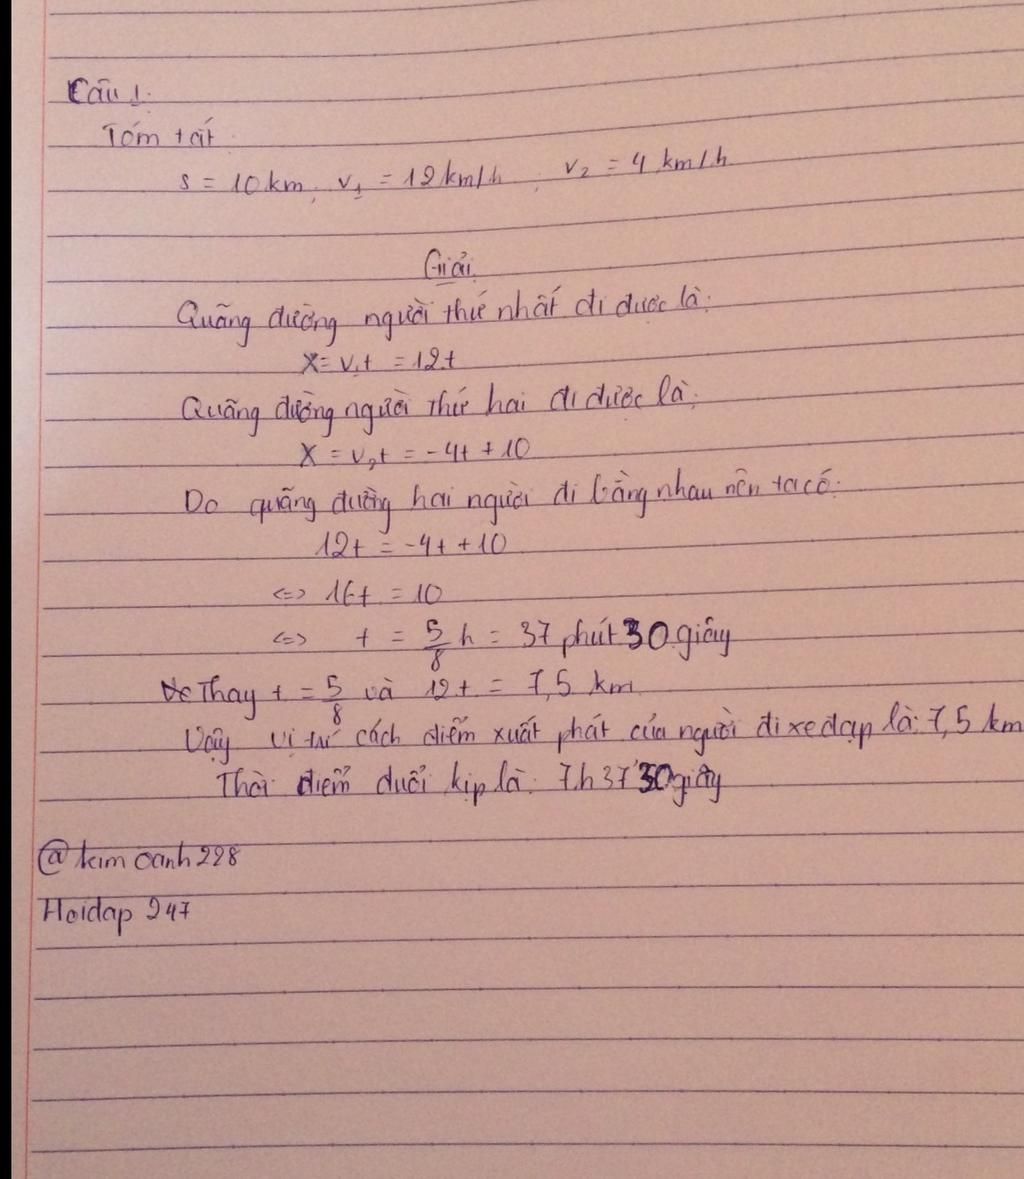 Câu 1.
Tóm tắt
s = 10 km; v₁ = 12 km/h ; v₂ = 4 km/h
Giải
Quãng đường người thứ nhất đi được là:
X = v₁t = 12t
Quãng đường người thứ hai đi được là:
X = v₂t = -4t + 10
Do quãng đường hai người đi bằng nhau nên ta có:
12t = -4t + 10
<=> 16t = 10
<=> t = 5/8 h = 37 phút 30 giây
Thay t = 5/8 và 12t = 7,5 km
Vậy vị trí cách điểm xuất phát của người đi xe đạp là: 7,5 km
Thời điểm đuổi kịp là: 7h 37' 30 giây
@kimoanh228
Hoidap 247